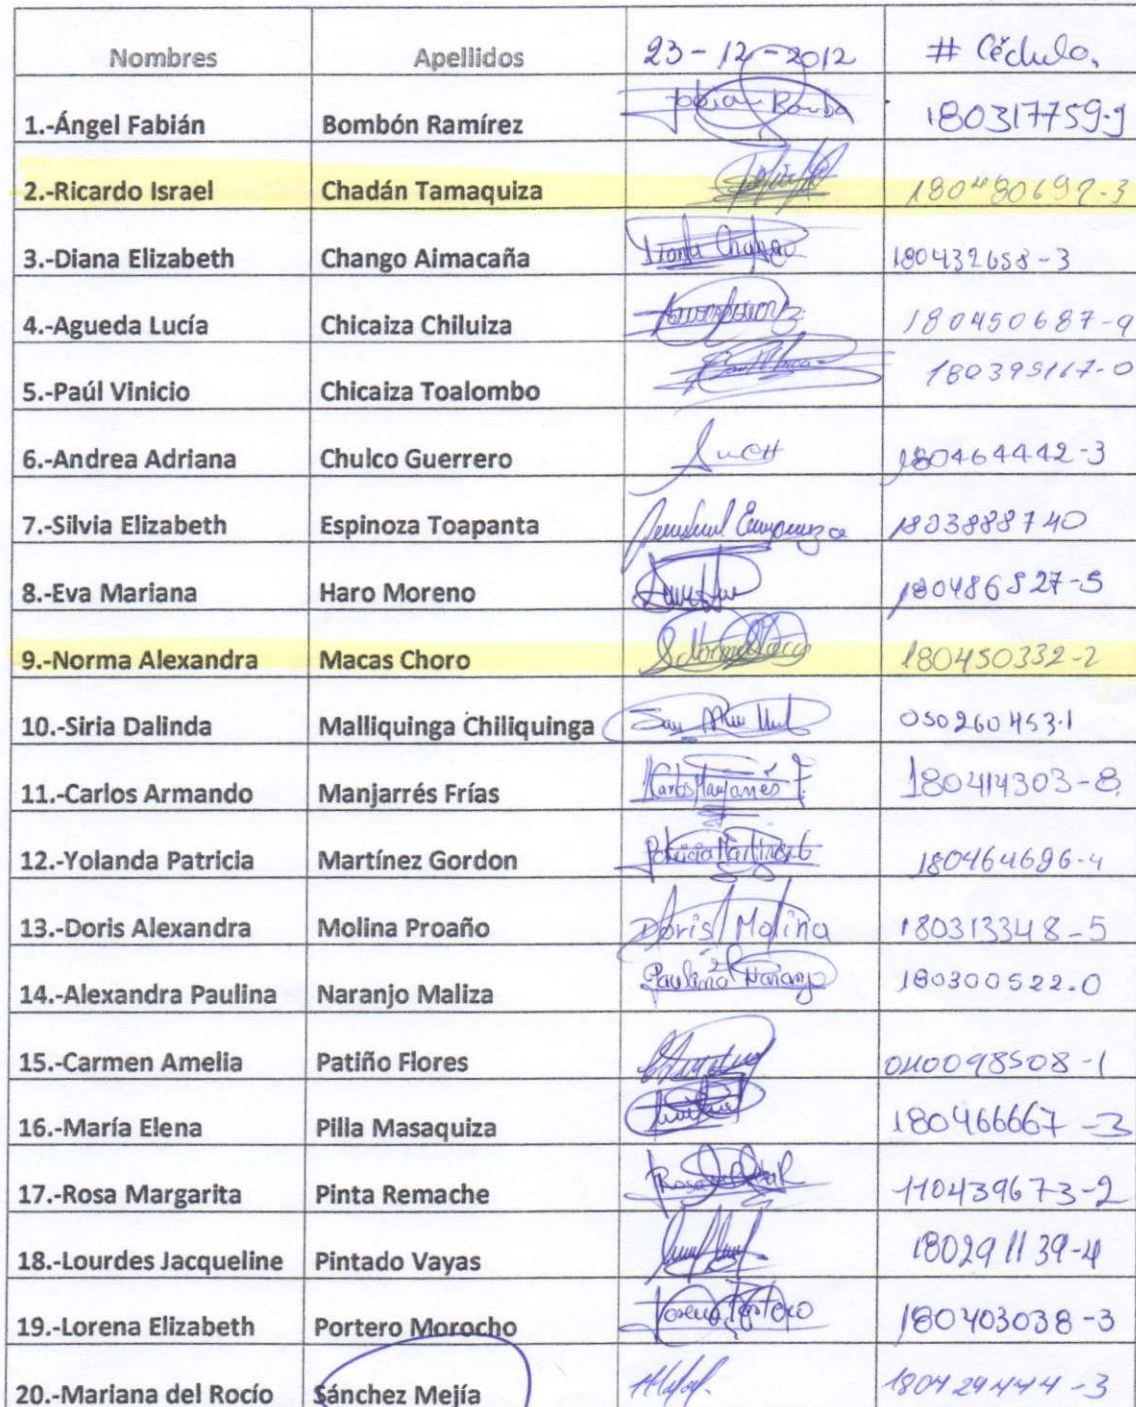 Nombres Apellidos 23-12-2012 # Cédula.
1.-Ángel Fabián Bombón Ramírez 180317759-9
2.-Ricardo Israel Chadán Tamaquiza 180480697-3
3.-Diana Elizabeth Chango Aimacaña Diana Chango 180432658-3
4.-Agueda Lucía Chicaiza Chiluiza 180450687-9
5.-Paúl Vinicio Chicaiza Toalombo 180395167-0
6.-Andrea Adriana Chulco Guerrero 180464442-3
7.-Silvia Elizabeth Espinoza Toapanta 1803888740
8.-Eva Mariana Haro Moreno 180486827-5
9.-Norma Alexandra Macas Choro 180450332-2
10.-Siria Dalinda Malliquinga Chiliquinga 050260453-1
11.-Carlos Armando Manjarrés Frías Carlos Manjarrés F. 180414303-8
12.-Yolanda Patricia Martínez Gordon Patricia Martínez G 180464696-4
13.-Doris Alexandra Molina Proaño Doris Molina 180313348-5
14.-Alexandra Paulina Naranjo Maliza Paulina Naranjo 180300522-0
15.-Carmen Amelia Patiño Flores 040098508-1
16.-María Elena Pilla Masaquiza 180466667-3
17.-Rosa Margarita Pinta Remache 110439673-2
18.-Lourdes Jacqueline Pintado Vayas 180291139-4
19.-Lorena Elizabeth Portero Morocho Lorena Portero 180403038-3
20.-Mariana del Rocío Sánchez Mejía 180429444-3